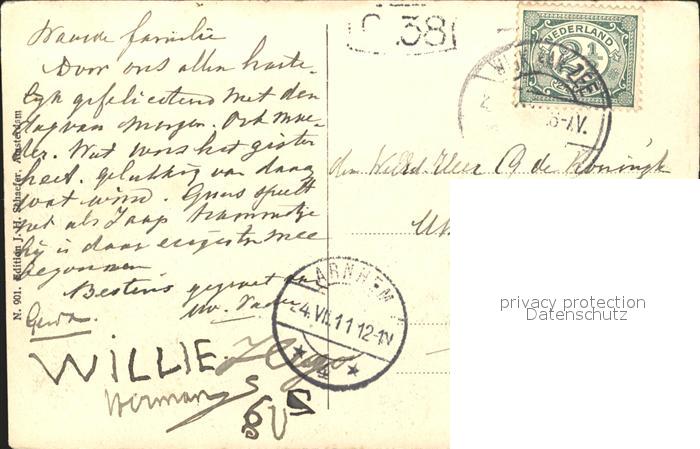 Waarde familie
Door ons allen harte-
lijk gefeliciteerd met den
dag van morgen. Ook moe-
der. Wat was het gister
heet. gelukkig van daag
wat wind. Guus speelt
net als Jaap trammetje
hij is daar eergister mee
begonnen
Bestens gegroet
uw.
Gerda.
WILLIE Hugo
Herman
N. 901. Edition J. H. Schaefer, Amsterdam
C 38
NEDERLAND
2½
WIJK AAN ZEE
den WelEd. Heer A de Koningh
ARNHEM
24.VII.11 12-1V
4
privacy protection
Datenschutz